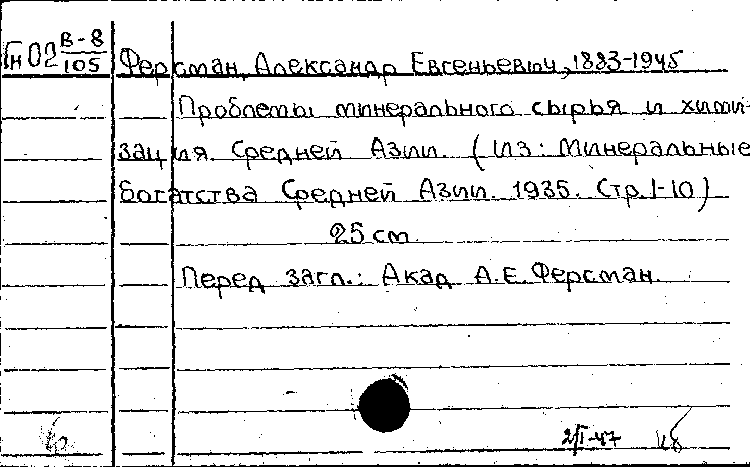 Гн02 В-8/105 Ферсман, Александр Евгеньевич, 1883-1945
Проблемы минерального сырья и хими-
зация Средней Азии. (Из: Минеральные
богатства Средней Азии. 1935. Стр. 1-10)
25 cm
Перед загл.: Акад А.Е. Ферсман.
2/I-47